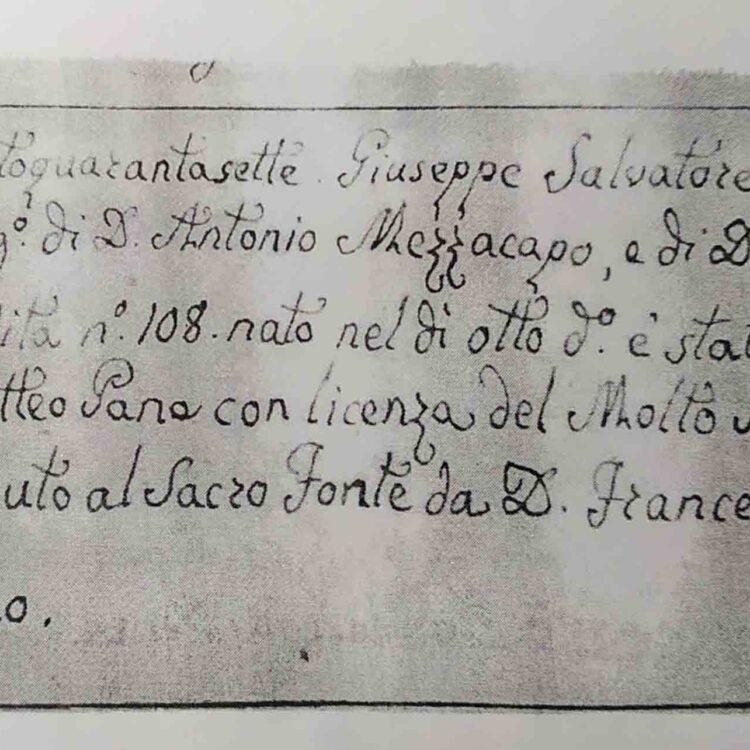 toquarantasette. Giuseppe Salvatore
gº. di D. Antonio Mezzacapo, e di D
ita nº. 108. nato nel dì otto dº. è stat
tteo Pane con licenza del Molto
uto al Sacro Fonte da D. France
o.